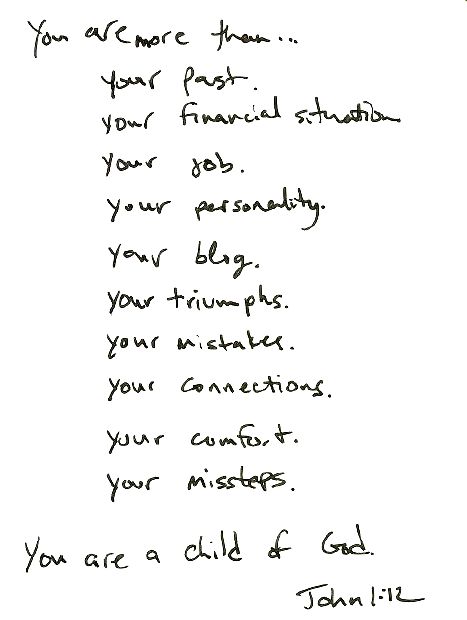 You are more than...
your past.
your financial situation
your job.
your personality.
your blog.
your triumphs.
your mistakes.
your connections.
your comfort.
your missteps.
You are a child of God.
John 1:12